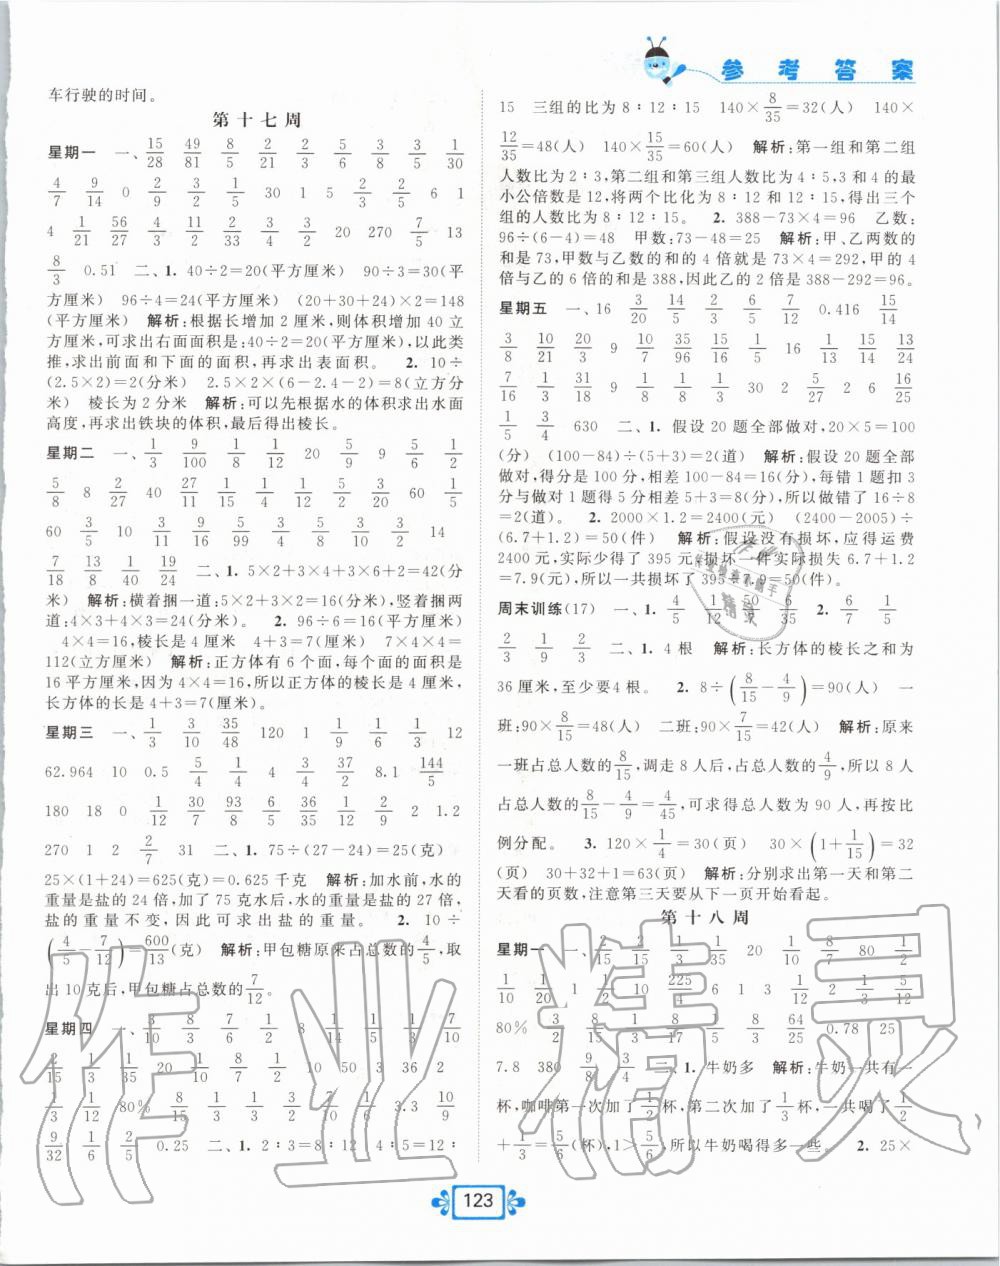 参考答案
车行驶的时间。
第十七周
星期一 一、15/28 49/81 8/5 2/21 2/3 5/6 3/8 3/5 1/30
4/7 9/14 0 2/9 3/2 1/5 30 1 5 2/5 2/5 6 1
4 1/21 56/27 4/3 2/33 3/4 2/3 20 270 7/5 13
8/3 0.51 二、1. 40÷2=20(平方厘米) 90÷3=30(平
方厘米) 96÷4=24(平方厘米) (20+30+24)×2=148
(平方厘米) 解析:根据长增加 2 厘米,则体积增加 40 立
方厘米,可求出右面面积是:40÷2=20(平方厘米),以此类
推,求出前面和下面的面积,再求出表面积。 2. 10÷
(2.5×2)=2(分米) 2.5×2×(6-2.4-2)=8(立方分
米) 棱长为 2 分米 解析:可以先根据水的体积求出水面
高度,再求出铁块的体积,最后得出棱长。
星期二 一、1/3 9/100 1/8 1/12 20 5/9 9 5/6 1/2
5/8 8 2/27 40 27/11 1/15 4/11 1/12 2/3 20/3 60 1/5
60 3/5 10 3/11 9/16 5/99 3/4 5/8 3/10 3/2 14
7/18 19/8 13/24 40 二、1. 5×2+3×4+3×6+2=42(分
米) 解析:横着捆一道:5×2+3×2=16(分米),竖着捆两
道:4×3+4×3=24(分米)。 2. 96÷6=16(平方厘米)
4×4=16,棱长是 4 厘米 4+3=7(厘米) 7×4×4=
112(立方厘米) 解析:正方体有 6 个面,每个面的面积是
16 平方厘米,因为 4×4=16,所以正方体的棱长是 4 厘米,
长方体的长是 4+3=7(厘米)。
星期三 一、1/3 3/10 35/48 120 1 1/9 1/6 1/3 12
62.964 10 0.5 5/4 1/4 4 3/4 37/2 8.1 144/5
180 18 0 1/12 30/7 93/8 6/5 36/35 1/12 8/5 2 1.2
270 1 2 2/7 31 二、1. 75÷(27-24)=25(克)
25×(1+24)=625(克)=0.625 千克 解析:加水前,水的
重量是盐的 24 倍,加了 75 克水后,水的重量是盐的 27 倍,
盐的重量不变,因此可求出盐的重量。 2. 10÷
(4/5-7/12)=600/13(克) 解析:甲包糖原来占总数的4/5,取
出 10 克后,甲包糖占总数的7/12。
星期四 一、3/10 8/3 7/6 1/2 8 3/7/10
2/15 1/3 50 3 36 2
1/3 1/12 80% 8/15 3.3 9/10
9/32 0.25 二、1. 2∶3=8∶12 4∶5=12∶
15 三组的比为 8∶12∶15 140×8/35=32(人) 140×
12/35=48(人) 140×15/35=60(人) 解析:第一组和第二组
人数比为 2∶3,第二组和第三组人数比为 4∶5,3 和 4 的最
小公倍数是 12,将两个比化为 8∶12 和 12∶15,得出三个
组的人数比为 8∶12∶15。 2. 388-73×4=96 乙数:
96÷(6-4)=48 甲数:73-48=25 解析:甲、乙两数的
和是 73,甲数与乙数的和的 4 倍就是 73×4=292,甲的 4
倍与乙的 6 倍的和是 388,因此乙的 2 倍是 388-292=96。
星期五 一、16 3/20 14/5 2/3 6/5 7/12 0.416 15/14
3/8 10/21 20/3 9 10/7 35/96 15/16 1/5 16 1/13 14/15 24/5
7/16 1/3 31/9 9 1/8 1/8 1/3 30 2 5/7 2 6 16/25
1/5 3/4 630 二、1. 假设 20 题全部做对,20×5=100
(分) (100-84)÷(5+3)=2(道) 解析:假设 20 题全部
做对,得分是 100 分,相差 100-84=16(分),每错 1 题扣 3
分与做对 1 题得 5 分相差 5+3=8(分),所以做错了 16÷8
=2(道)。 2. 2000×1.2=2400(元) (2400-2005)÷
(6.7+1.2)=50(件) 解析:假设没有损坏,应得运费
2400 元,实际少得了 395 元,损坏一件实际损失 6.7+1.2
=7.9(元),所以一共损坏了 395÷7.9=50(件)。
周末训练(17) 一、1. 4/5 1/12 50/7 6/35 2. 6/7 1/5
2/3 1/9 2/3 二、1. 4 根 解析:长方体的棱长之和为
36 厘米,至少要 4 根。 2. 8÷(8/15-4/9)=90(人) 一
班:90×8/15=48(人) 二班:90×7/15=42(人) 解析:原来
一班占总人数的8/15,调走 8 人后,占总人数的4/9,所以 8 人
占总人数的8/15-4/9=4/45,可求得总人数为 90 人,再按比
例分配。 3. 120×1/4=30(页) 30×(1+1/15)=32
(页) 30+32+1=63(页) 解析:分别求出第一天和第二
天看的页数,注意第三天要从下一页开始看起。
第十八周
星期一 一、2/15 1/3 20 1/10 8/7 80 1/2
1/10 1/20 10 225/4 6 1 3 1/12
80% 3/2 8/15 8/3 64/25 0.78 25
7.8 380 9/8 3/4 二、1. 牛奶多 解析:牛奶一共有一
杯,咖啡第一次加了1/2杯,第二次加了1/3杯,一共喝了1/2
+1/3=5/6(杯),1>5/6,所以牛奶喝得多一些。 2. 25×
123
作业精灵